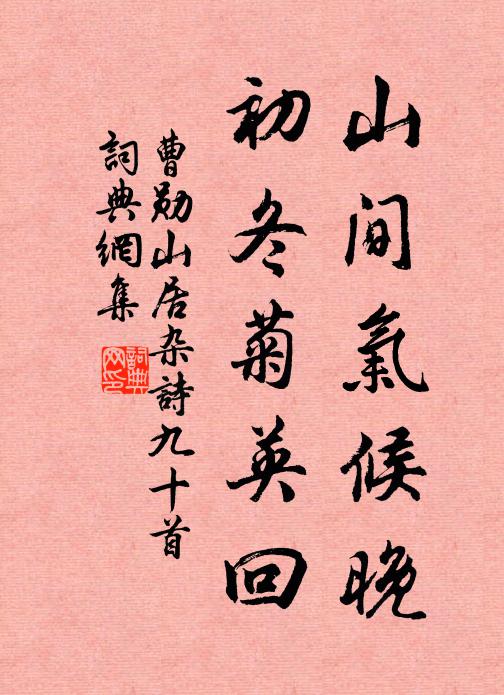 山間氣候晚
初冬菊英回
曹勋山居杂詩九十首
詞典網集
詞典
网印